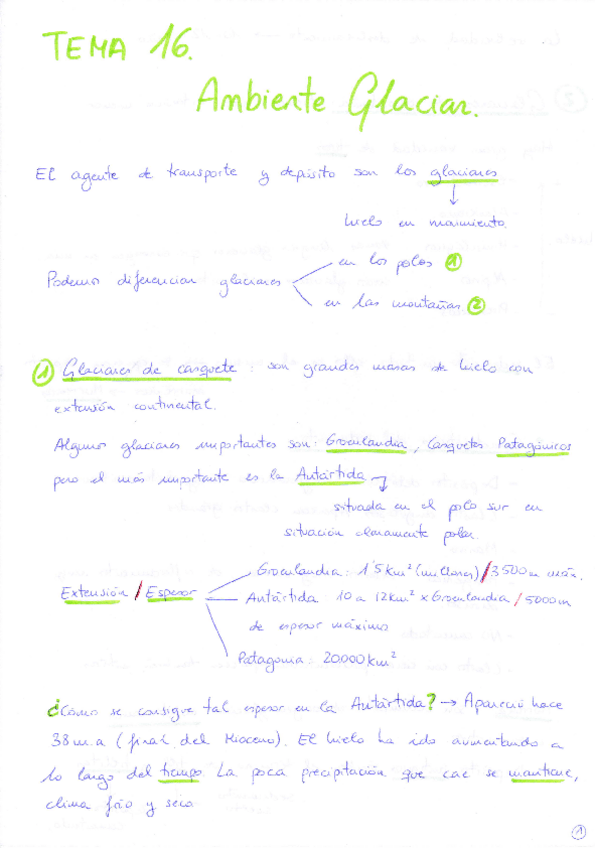 TEMA 16.
Ambiente Glaciar.
El agente de transporte y depósito son los glaciares
↓
hielo en movimiento.
Podemos diferenciar glaciares
en los polos ①
en las montañas ②
① Glaciares de casquete : son grandes masas de hielo con
extensión continental.
Algunos glaciares importantes son: Groenlandia, Casquetes Patagónicos
pero el más importante es la Antártida
situada en el polo sur en
situación claramente polar.
Extensión / Espesor
Groenlandia: 1'5 km² (millones) / 3500 m máx.
Antártida 10 a 12 km² x Groenlandia / 5000 m
de espesor máximo
Patagonia: 20.000 km²
¿Cómo se consigue tal espesor en la Antártida? → Apareció hace
38 m.a (final del Mioceno). El hielo ha ido aumentando a
lo largo del tiempo. La poca precipitación que cae se mantiene,
clima frío y seco.
1